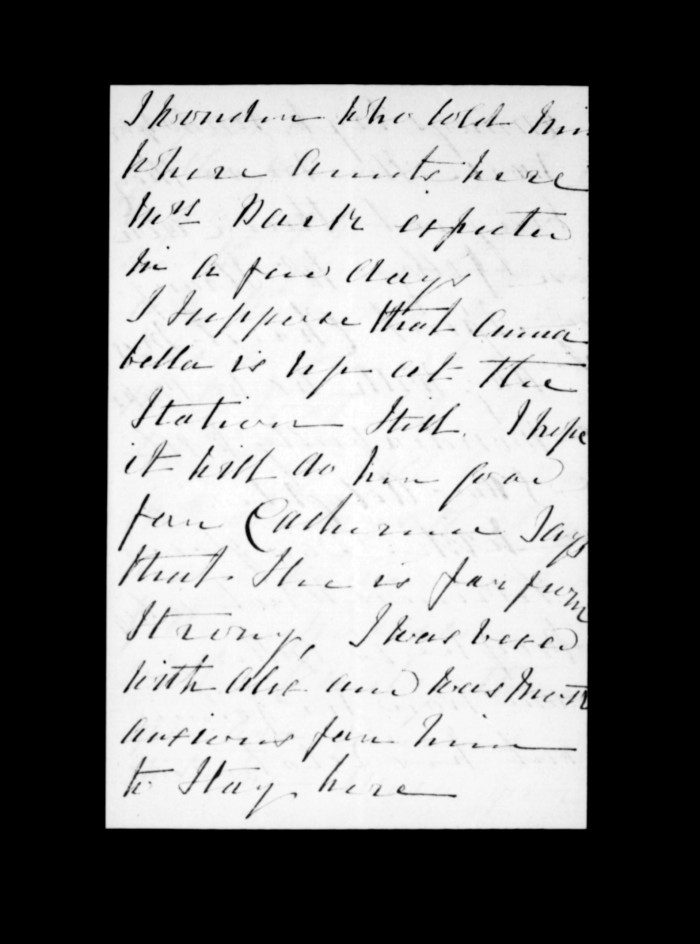 I wonder who told him
where Aunt is here
Mrs expects
him in a few days
I suppose that Anna
bella is up at the
Station Still. I hope
it will do her good
for Catherine Says
that She is far from
Strong, I was vexed
with Alex and was most
anxious for him
to Stay here